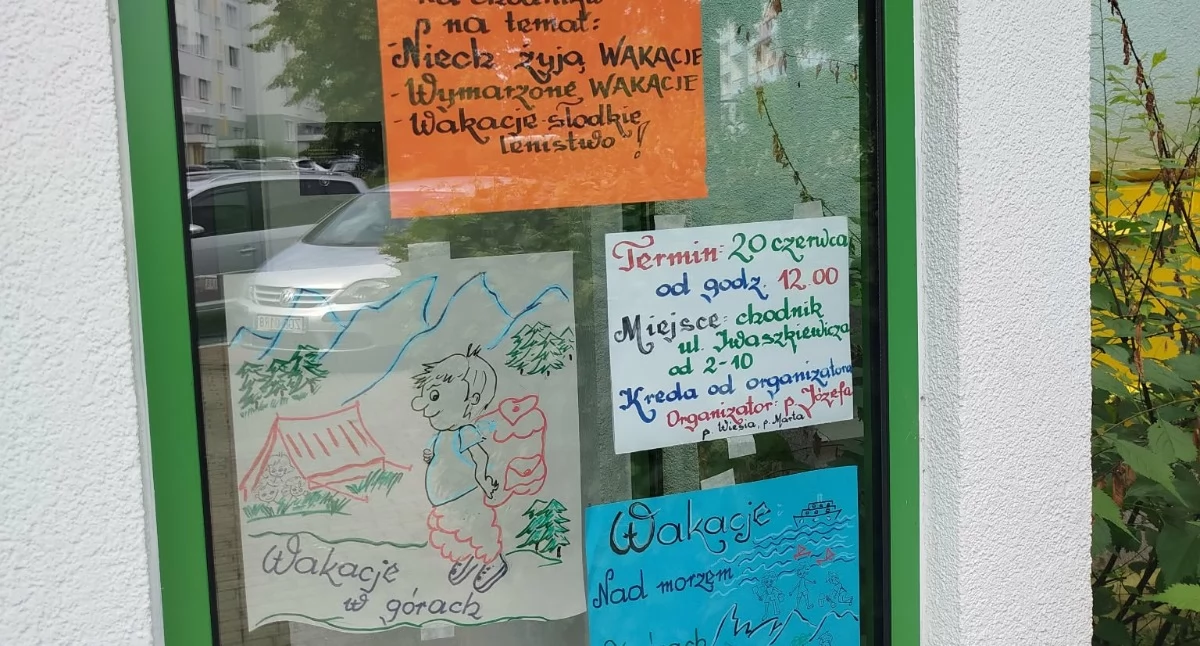 na chodników
na temat:
- Niech żyją WAKACJE
- Wymarzone WAKACJE
- Wakacje słodkie
lenistwo!
Termin: 20 czerwca
od godz. 12.00
Miejsce: chodnik
ul. Iwaszkiewicza
od 2-10
Kreda od organizatora
Organizator: p. Józefa
p. Wiesia, p. Marta
Wakacje
w górach
Wakacje
Nad morzem